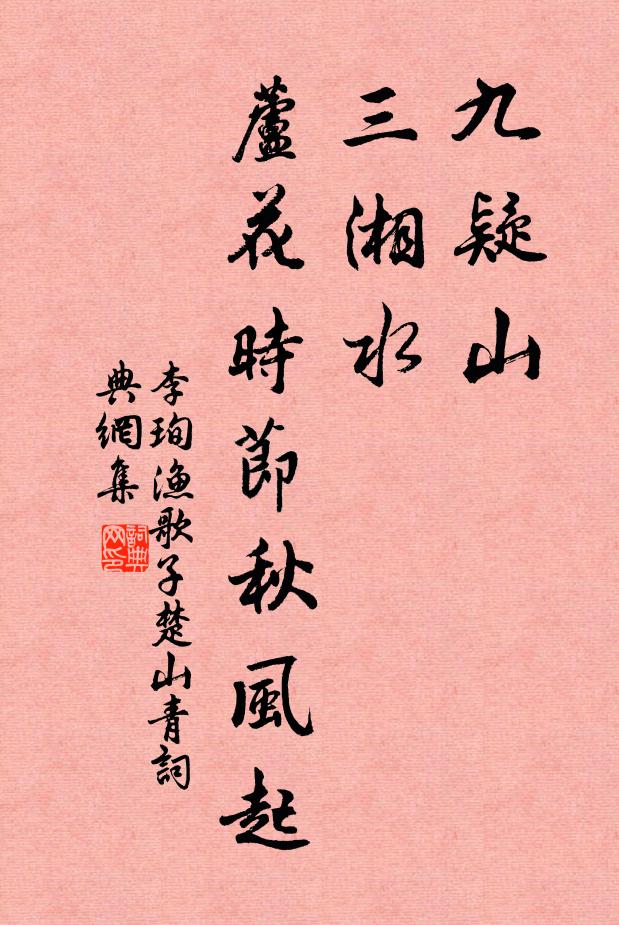 九疑山
三湘水
蘆花時節秋風起
李珣漁歌子楚山青詞
典網集
詞典
网印